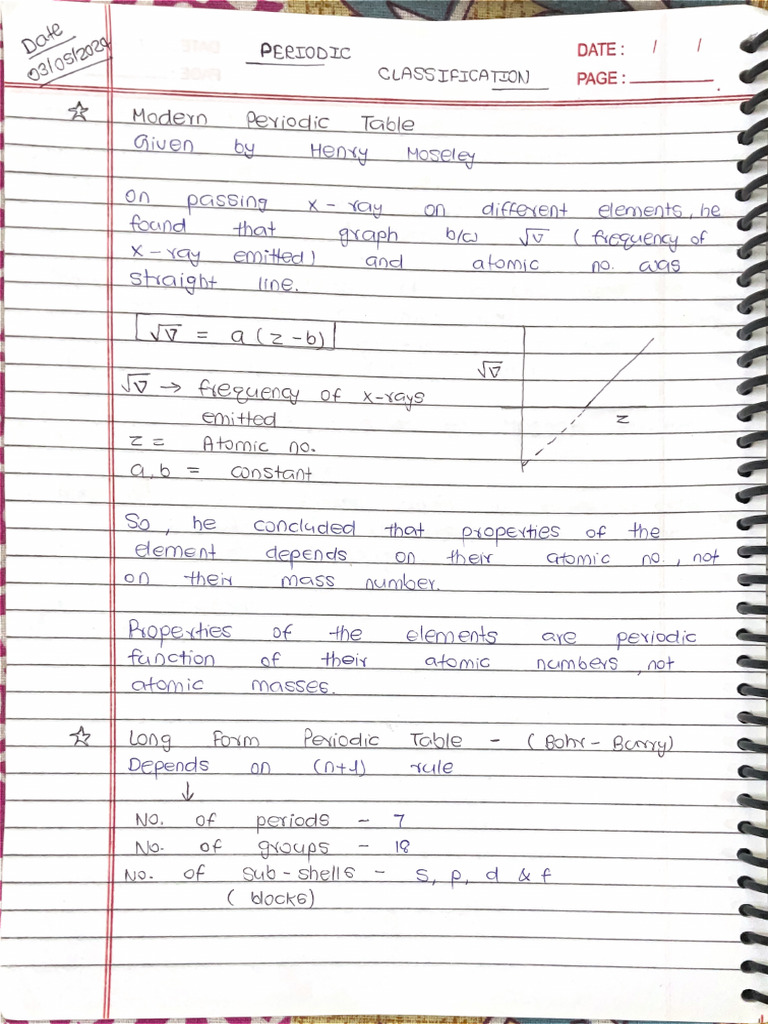 Date
03/05/2024
PERIODIC
CLASSIFICATION
DATE: / /
PAGE:
☆ Modern Periodic Table
Given by Henry Moseley
On passing x-ray on different elements, he
found that graph b/w √ν (frequency of
x-ray emitted) and atomic no. was
straight line.
√ν = a (z-b)
√ν → frequency of x-rays
emitted
z = Atomic no.
a, b = constant
√ν
z
So, he concluded that properties of the
element depends on their atomic no., not
on their mass number.
Properties of the elements are periodic
function of their atomic numbers, not
atomic masses.
☆ Long Form Periodic Table - (Bohr-Burry)
Depends on (n+l) rule
↓
No. of periods - 7
No. of groups - 18
No. of sub-shells - s, p, d & f
(blocks)